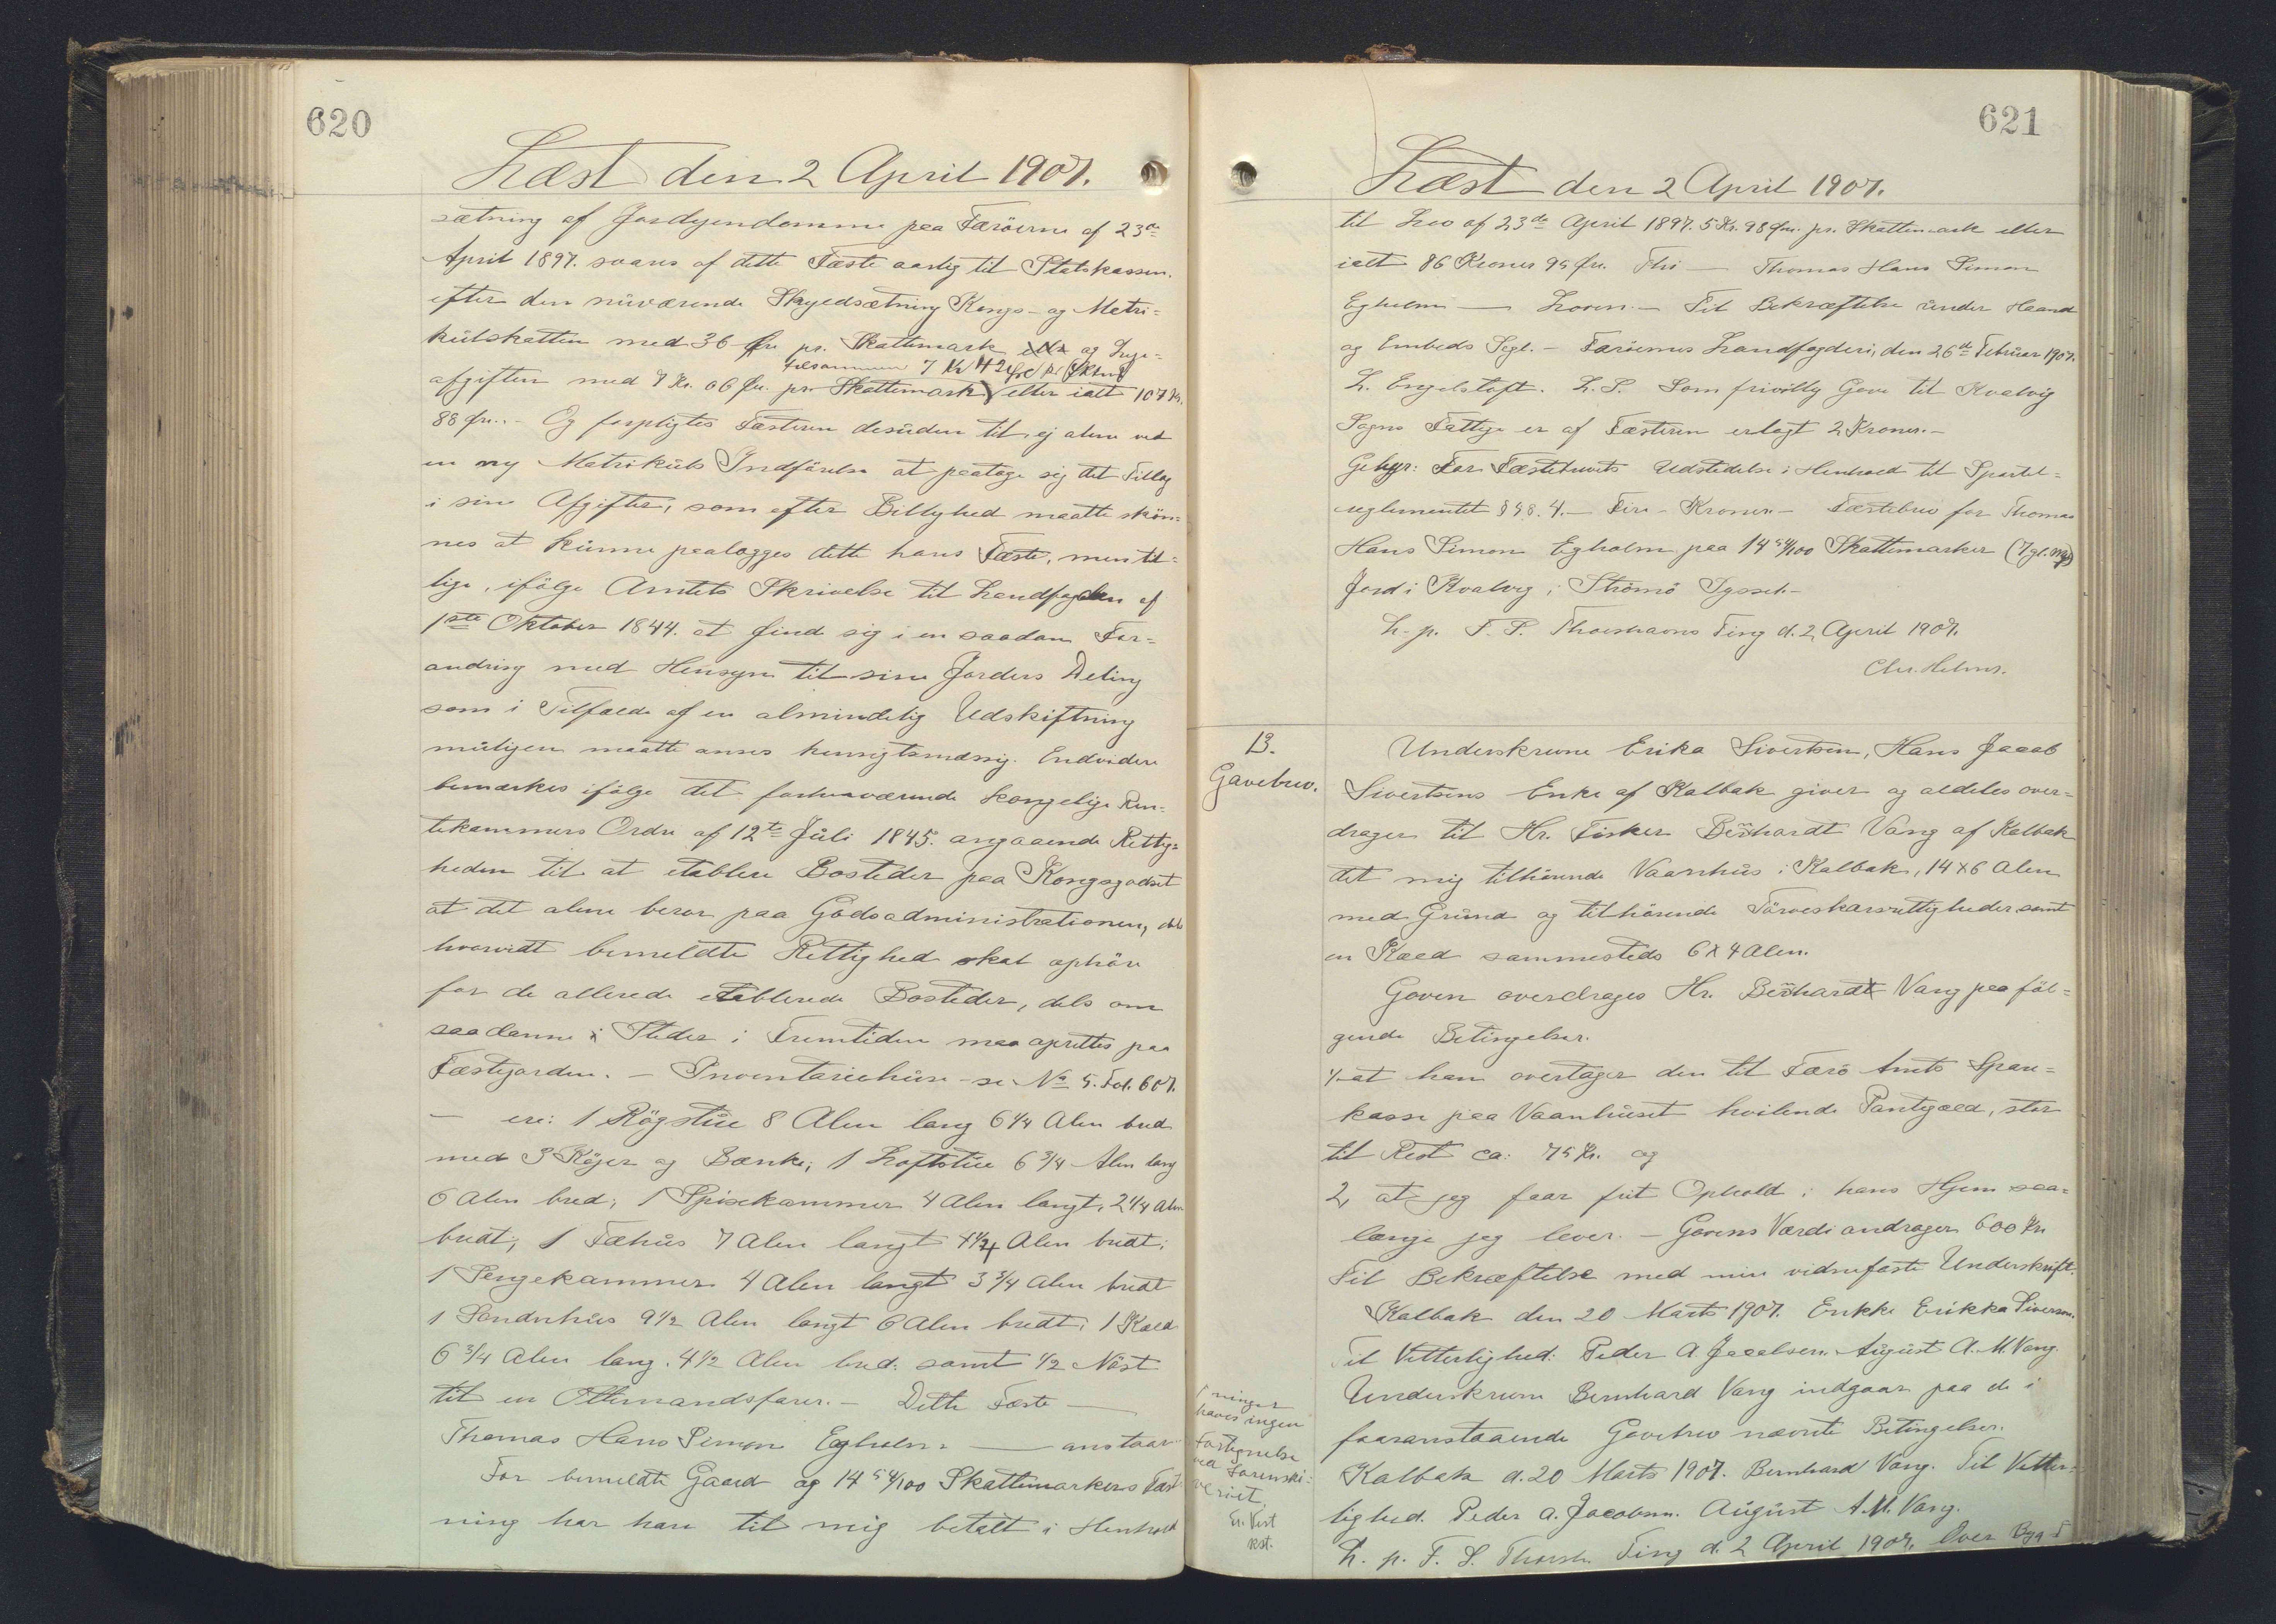 620
Læst den 2 April 1907.
sætning af Jordejendomme paa Færöerne af 23de
April 1897. svares af dette Fæste aarlig til Statskassen
efter den nuværende Skyldsætning Konge- og Matri=
kulskatten med 36 Øre pr. Skattemark og Leje=
tilsammen 7 Kr 42 Øre pr Sktmk
afgiften med 7 Kr. 06 Øre pr. Skattemark eller ialt 107 Kr.
88 Øre. - Og forpligtes Fæsteren desuden til, ej alene ved
en ny Matrikuls Indførelse at paatage sig det Tillæg
i sine Afgifter, som efter Billighed maatte skön=
nes at kunne paalægges dette hans Fæste, men til=
lige, ifölge Amtets Skrivelse til Landfogden af
1ste Oktober 1844. at finde sig i en saadan For=
andring med Hensyn til sine Jorders Deling
som i Tilfælde af en almindelig Udskiftning
muligen maatte anses hensigtsmæssig. Endvidere
bemærkes ifölge det forhenværende kongelige Ren=
tekammers Ordre af 12te Juli 1845. angaaende Rettig=
heden til at etablere Bosteder paa Kongsgodset
at det alene beror paa Godsadministrationen, dels
hvorvidt bemeldte Rettighed skal ophöre
for de allerede etablerede Bosteder, dels om
saadanne Steder i Fremtiden maa oprettes paa
Fæstejorden. - Inventariehuse - se No 5. Fol. 607.
- ere: 1 Rögstue 8 Alen lang 6 1/4 Alen bred
med 3 Köjer og Bænke; 1 Loftstue 6 3/4 Alen lang
6 Alen bred; 1 Spisekammer 4 Alen langt, 2 1/4 Alen
bredt; 1 Fæhus 7 Alen langt Alen bredt;
1 Sengekammer 4 Alen langt 3 3/4 Alen bredt
1 Sondhus 9 1/2 Alen langt 6 Alen bredt; 1 Kæld
6 3/4 Alen lang. 4 1/2 Alen bred. samt 1/2 Nöst
til en Ottemandsfarer. - Dette Fæste -
Thomas Hans Simon Egholm - anstaar
For bemeldte Gaard og 14 54/100 Skattemarkers Fæst
ning har han til mig betalt i Henhold
621
Læst den 2 April 1907.
til Lov af 23de April 1897. 5 Kr. 98 Øre. pr. Skattemark eller
ialt 86 Kroner 95 Øre. Thi - Thomas Hans Simon
Egholm - Loven. - Til Bekræftelse under Haand
og Embeds Segl. - Færöernes Landfogderi, den 26de Februar 1907.
L. Engelstoft. L. S. Som frivillig Gave til Kvalvig
Sogns Fattige er af Fæsteren erlagt 2 Kroner. -
Gebyr: For Fæstebrevets Udstedelse i Henhold til Sportel=
reglementet § 98. 4. - Fire - Kroner. - Fæstebrev for Thomas
Hans Simon Egholm paa 14 54/100 Skattemarker (7 gl. Mk)
Jord i Kvalvig i Strömö Syssel. -
L. p. F. S. Thorshavns Ting d. 2 April 1907.
Chr. Helms.
13.
Gavebrev.
Underskrevne Erika Sivertsen, Hans Jacob
Sivertsens Enke af Kalbak giver og aldeles over=
drager til Hr. Fisker Bernhardt Vang af Kalbak
det mig tilhörende Vaanhus i Kalbak, 14 x 6 Alen
med Grund og tilhörende Törveskærsrettigheder samt
en Kæld sammesteds 6 x 4 Alen.
Gaven overdrages Hr. Bernhardt Vang paa föl=
gende Betingelser.
1, at han overtager den til Færö Amts Spare=
kasse paa Vaanhuset hvilende Pantegæld, stor
til Rest ca: 75 Kr. og
2, at jeg faar frit Ophold i hans Hjem saa=
længe jeg lever. - Gavens Værdi andrager 600 Kr.
Til Bekræftelse med min vidnefaste Underskrift.
Kalbak den 20 Marts 1907. Enkke Erikka Siversen.
Til Vitterlighed: Peder A Jacobsen. August A. M. Vang.
Underskrevne Bernhard Vang indgaar paa de i
foranstaaende Gavebrev nævnte Betingelser.
Kalbak d. 20 Marts 1907. Bernhard Vang. Til Vitter=
lighed. Peder A. Jacobsen. August A. M. Vang.
L. p. F. S. Thorsh. Ting d. 2 April 1907. Over
haves ingen
Fortegnelse